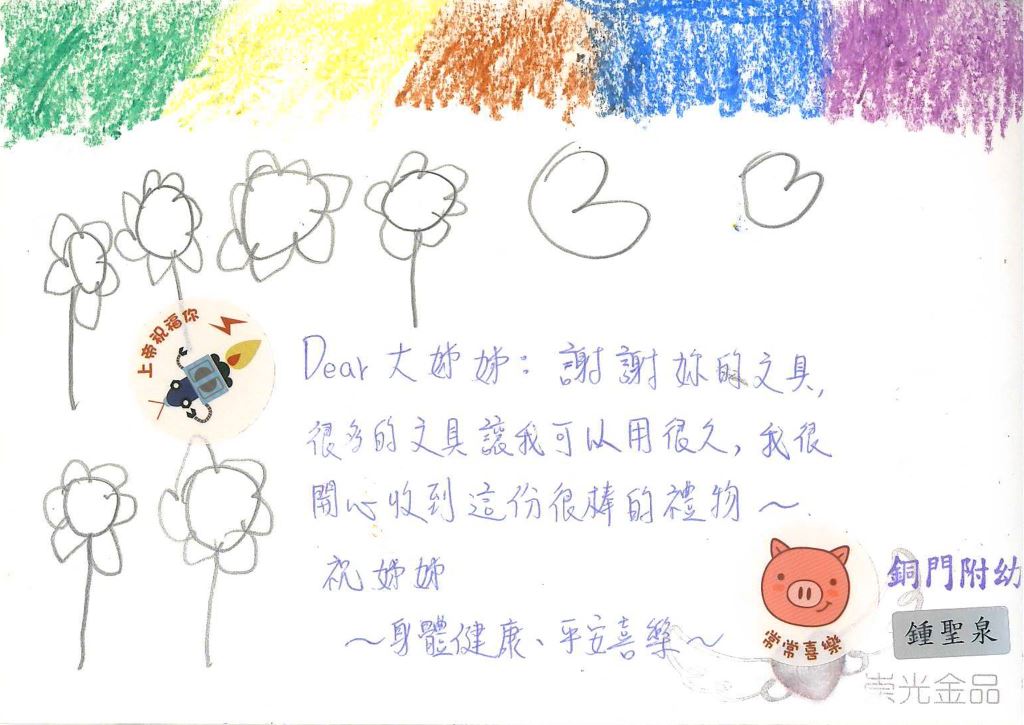 上帝祝福你
Dear 大姊姊：謝謝妳的文具,
很多的文具讓我可以用很久，我很
開心收到這份很棒的禮物～
祝姊姊
～身體健康、平安喜樂～
常常喜樂
銅門附幼
鍾聖泉
崇光金品